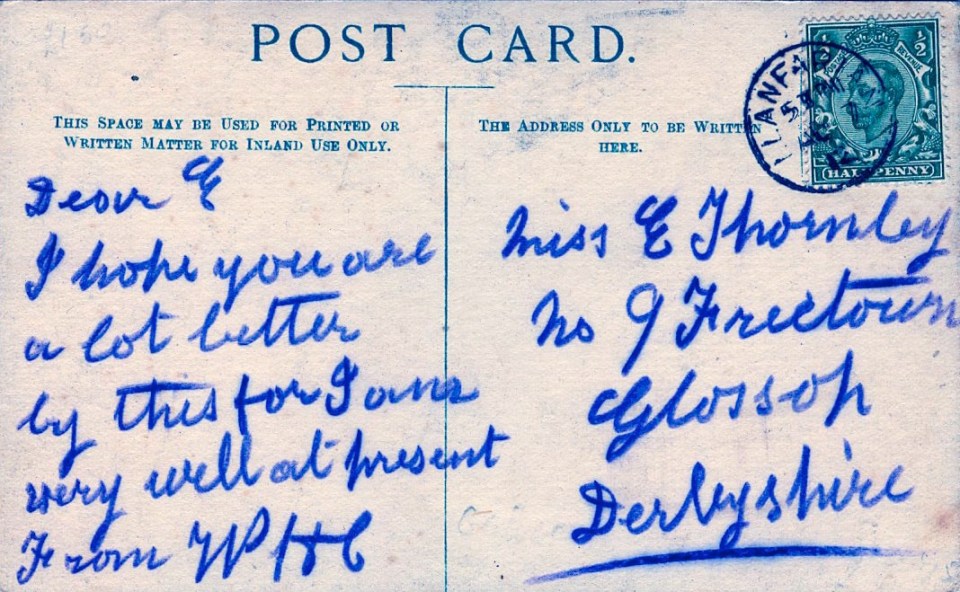 POST CARD.
THIS SPACE MAY BE USED FOR PRINTED OR
WRITTEN MATTER FOR INLAND USE ONLY.
THE ADDRESS ONLY TO BE WRITTEN
HERE.
½
HALFPENNY
POSTAGE
REVENUE
Dear E
I hope you are
a lot better
by this for I am
very well at present
From W P H C
Miss E Thornley
No 9 Freetown
Glossop
Derbyshire